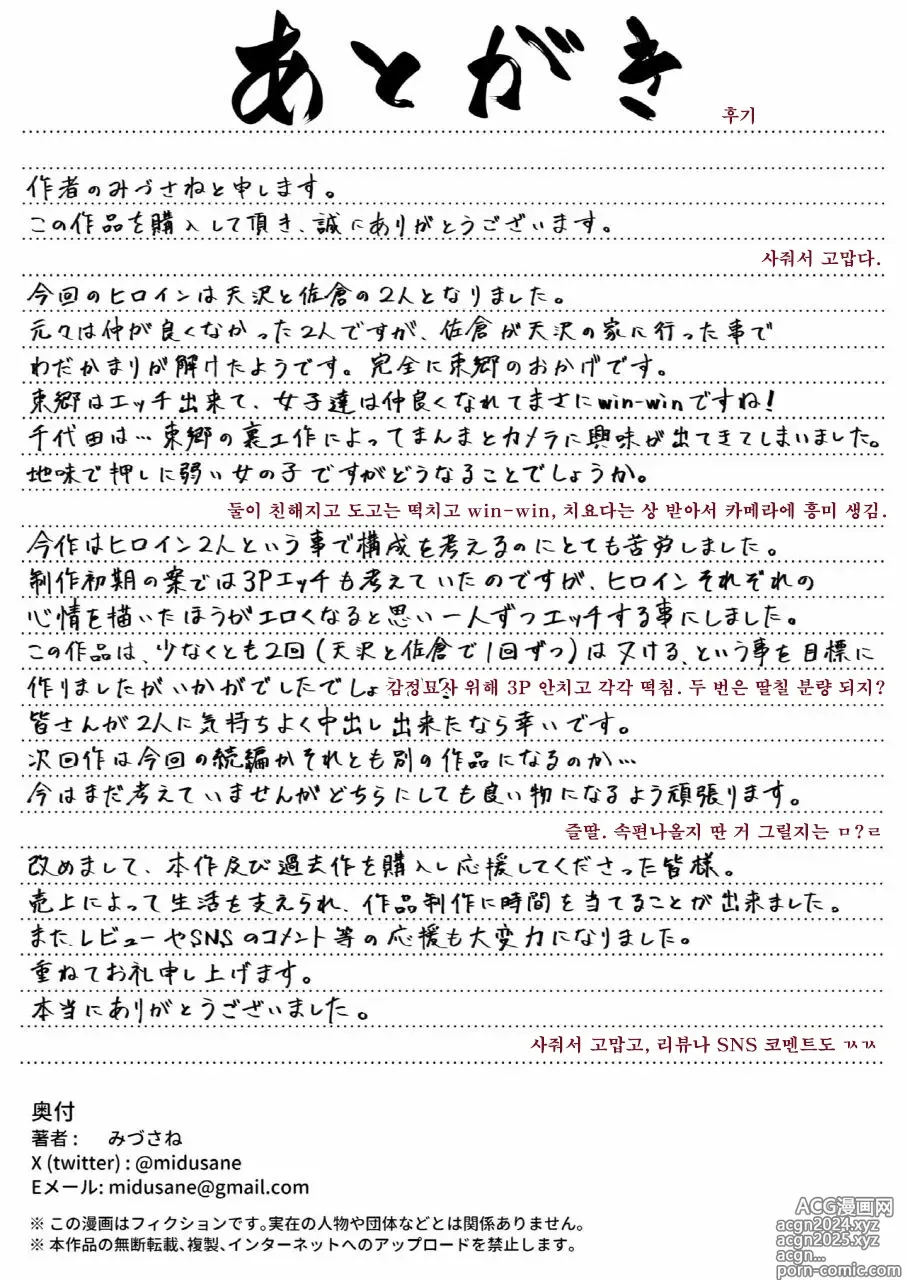 あとがき
후기
作者のみづさねと申します。
この作品を購入して頂き、誠にありがとうございます。
사줘서 고맙다.
今回のヒロインは天沢と佐倉の2人となりました。
元々は仲が良くなかった2人ですが、佐倉が天沢の家に行った事で
わだかまりが解けたようです。完全に東郷のおかげです。
東郷はエッチ出来て、女子達は仲良くなれてまさにwin-winですね!
千代田は…東郷の裏工作によってまんまとカメラに興味が出てきてしまいました。
地味で押しに弱い女の子ですがどうなることでしょうか。
둘이 친해지고 도고는 떡치고 win-win, 치요다는 상 받아서 카메라에 흥미 생김.
今作はヒロイン2人という事で構成を考えるのにとても苦労しました。
制作初期の案では3Pエッチも考えていたのですが、ヒロインそれぞれの
心情を描いたほうがエロくなると思い一人ずつエッチする事にしました。
この作品は、少なくとも2回(天沢と佐倉で1回ずつ)は ヌける、という事を目標に
作りましたがいかがでしたでしょ
감정묘사 위해 3P 안치고 각각 떡침. 두 번은 딸칠 분량 되지?
皆さんが2人に気持ちよく中出し出来たなら幸いです。
次回作は今回の続編かそれとも別の作品になるのか…
今はまだ考えていませんがどちらにしても良い物になるよう頑張ります。
즐딸. 속편나올지 딴 거 그릴지는 ㅁ?ㄹ
改めまして、本作及び過去作を購入し応援してくださった皆様。
売上によって生活を支えられ、作品制作に時間を当てることが出来ました。
また、レビューやSNSのコメント等の応援も大変力になりました。
重ねてお礼申し上げます。
本当にありがとうございました。
사줘서 고맙고, 리뷰나 SNS 코멘트도 ㄲㄲ
奥付
著者: みづさね
X (twitter) : @midusane
Eメール: midusane@gmail.com
※ この漫画はフィクションです。実在の人物や団体などとは関係ありません。
※ 本作品の無断転載、複製、インターネットへのアップロードを禁止します。
ACG漫画网
acgn2024.xyz
acgn2025.xyz
acgn...
porn-comic.com